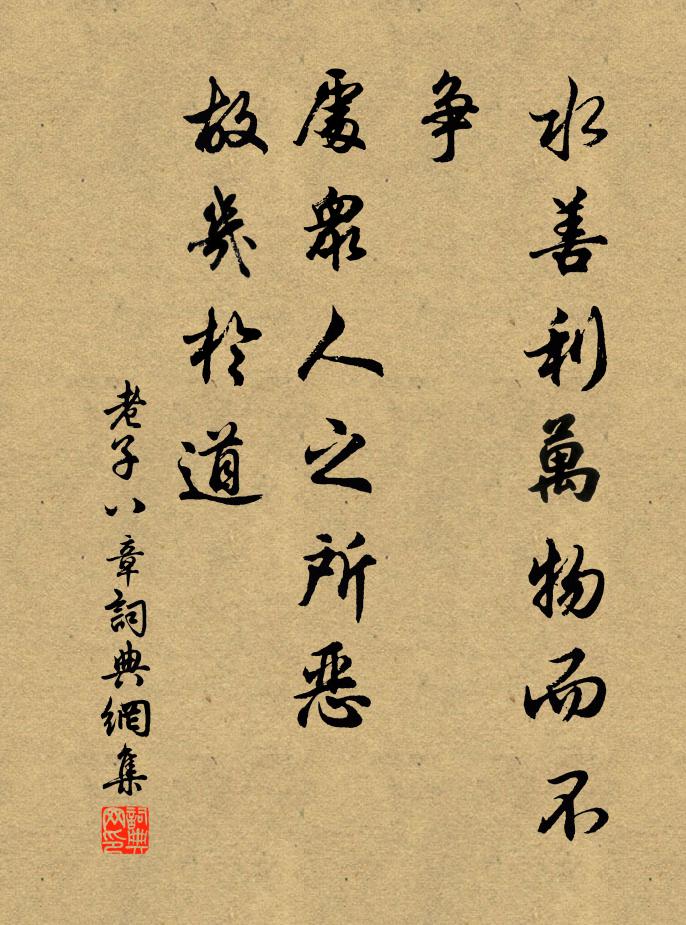 水善利萬物而不
争
處衆人之所惡
故幾於道
老子八章詞典網集
詞典网印